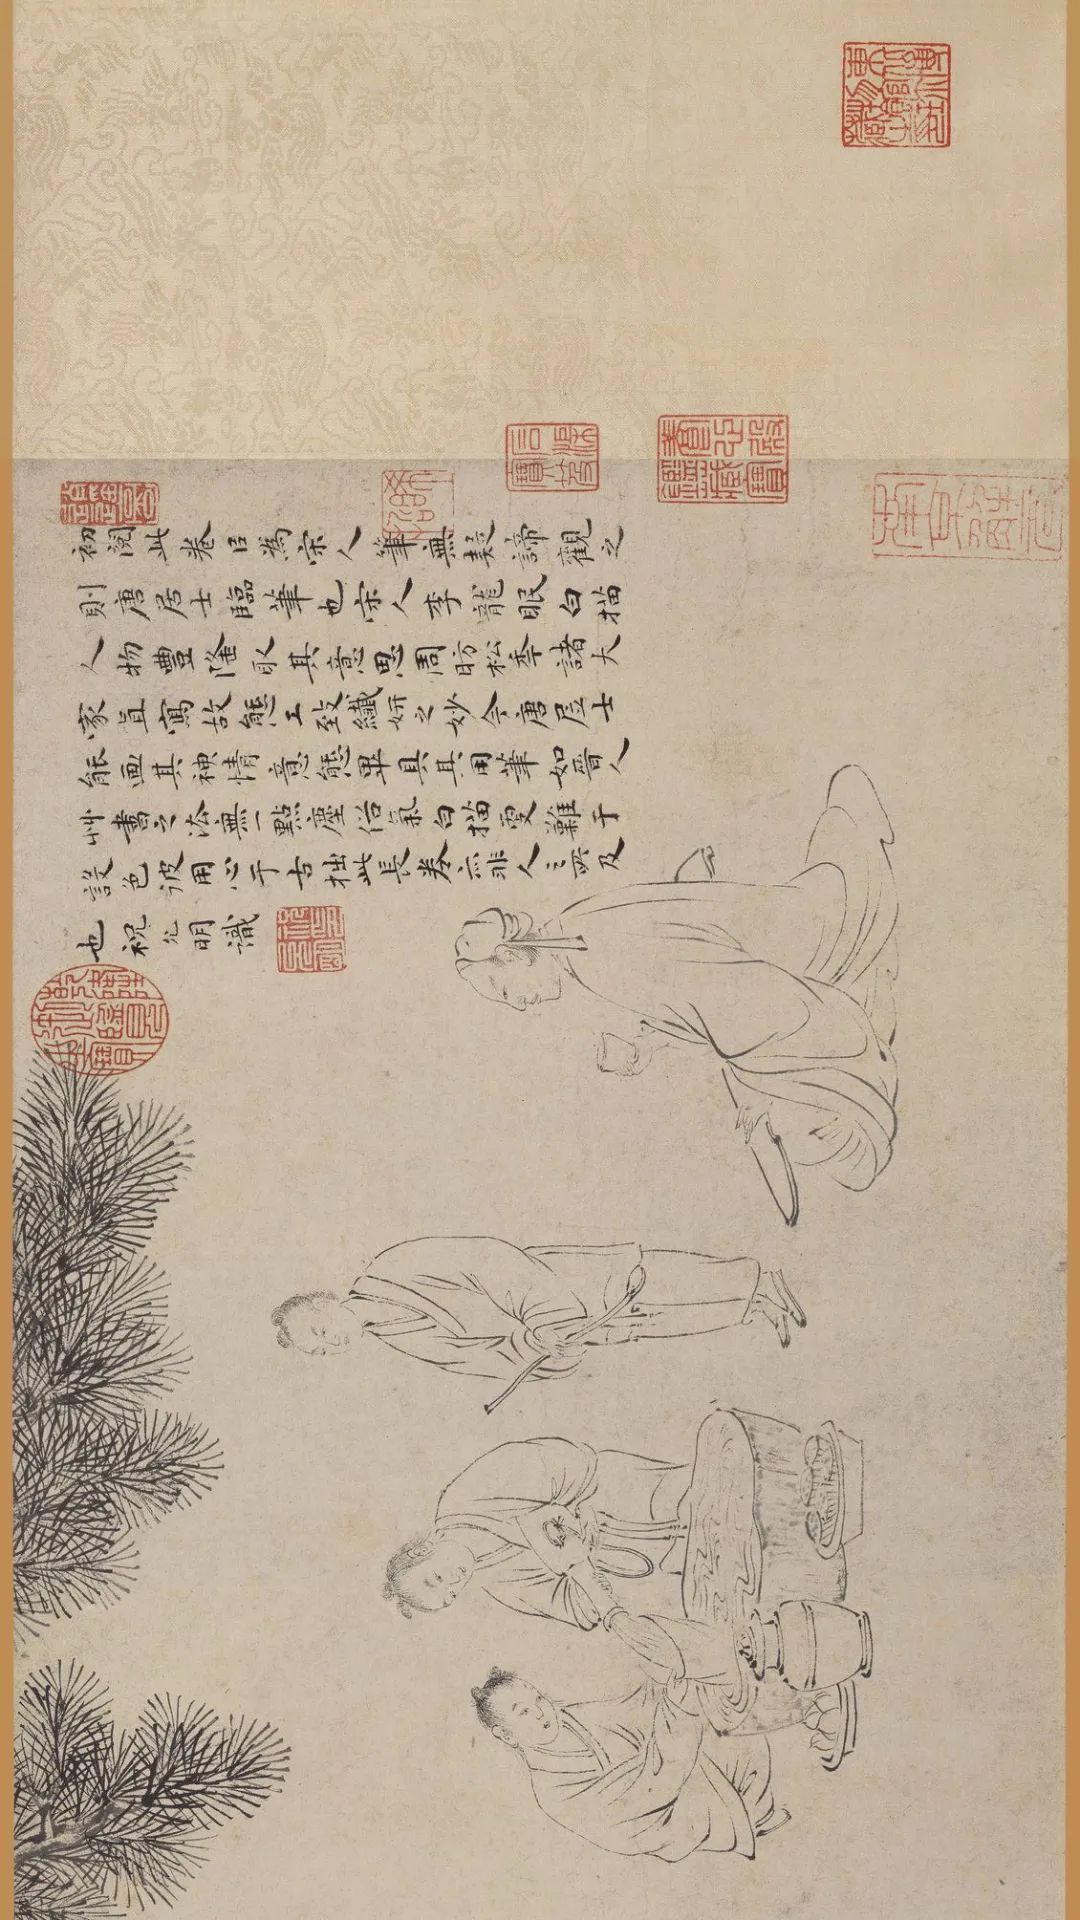 初閱此卷㠯為宋人筆無疑諦觀之
則唐居士臨筆也宋人李龍眠白描
人物豐隆取其意思周昉松季諸大
家直寫故態工致纖妍之妙今唐居士
能画其神情意態畢具其用筆如晉人
艸書之法無一點塵俗氣白描更難于
設色用心于古拙此長卷非人之及
也祝允明識